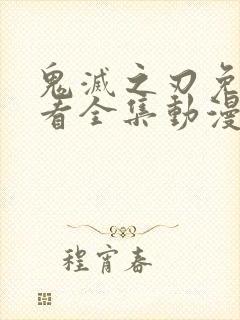 鬼滅之刃免
看全集動漫
程宵春